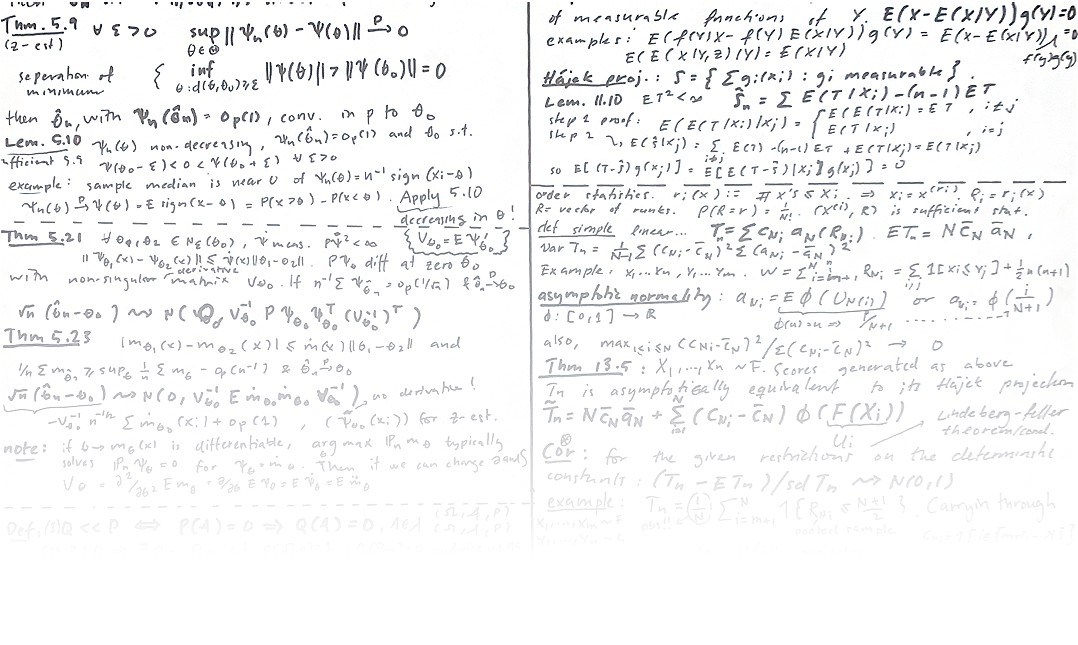 Thm. 5.9 ∀ ε>0 sup ||Ψn(θ) - Ψ(θ)|| →P 0
(z-est) θ∈Θ
seperation of { inf ||Ψ(θ)|| > ||Ψ(θ0)|| = 0
minimum θ:d(θ,θ0)≥ε
then θ̂n, with Ψn(θ̂n) = op(1), conv. in p to θ0
Lem. 5.10 Ψn(θ) non-decreasing, Ψn(θ̂n)=op(1) and θ0 s.t.
sufficient 5.9 Ψ(θ0-ε)<0<Ψ(θ0+ε) ∀ ε>0
example: sample median is near 0 of Ψn(θ)=n⁻¹ sign(xi-θ)
Ψn(θ) →P Ψ(θ) = E sign(x-θ) = P(x>θ) - P(x<θ). Apply 5.10
decreasing in θ!
Thm 5.21 ∀ θ1,θ2 ∈ Nε(θ0), Ψ meas. PΨ̇²<∞ {Vθ0 = EΨ̇θ0}
||Ψθ1(x) - Ψθ2(x)|| ≤ Ψ̇(x)||θ1-θ2||. PΨθ diff at zero θ0
with non-singular derivative matrix Vθ0. If n⁻¹ΣΨθ̂n = op(1/√n) & θ̂n →P θ0
√n(θ̂n-θ0) ⇝ N(0, Vθ0⁻¹ P Ψθ0 Ψθ0ᵀ (Vθ0⁻¹)ᵀ)
Thm 5.23
|mθ1(x) - mθ2(x)| ≤ ṁ(x)||θ1-θ2|| and
1/n Σ mθ̂n ≥ supθ 1/n Σ mθ - op(n⁻¹) & θ̂n →P θ0
√n(θ̂n-θ0) ⇝ N(0, Vθ0⁻¹ E ṁθ0 ṁθ0 Vθ0⁻¹), no derivative!
-Vθ0⁻¹ n⁻¹ᐟ² Σ ṁθ0(xi) + op(1) , (Ψθ0(xi)) for z-est.
note: if θ→mθ(x) is differentiable, arg max Pn mθ typically
solves PnΨθ = 0 for Ψθ = ṁθ. Then if we can change ∂ and ∫
Vθ = ∂²/∂θ² E mθ = ∂/∂θ EΨθ = EΨ̇θ = E m̈θ
Def. Q << P ⟺ P(A) = 0 ⇒ Q(A) = 0, A∈
of measurable functions of Y. E(X-E(X|Y))g(Y)=0
examples: E(f(Y)X - f(Y)E(X|Y))g(Y) = E(X-E(X|Y)) =0
E(E(X|Y,Z)|Y) = E(X|Y) f(y)g(y)
Hájek proj.: S = {Σ gi(xi) : gi measurable}.
Lem. 11.10 ET²<∞ Ŝn = Σ E(T|Xi) - (n-1)ET
step 1 proof: E(E(T|Xi)|Xj) = { E(E(T|Xi) = ET , i≠j
E(T|Xj) , i=j
step 2 ↳ E(ŝ|Xj) = Σ E(T) - (n-1)ET + E(T|Xj) = E(T|Xj)
i≠j
so E[(T-ŝ)g(Xj)] = E[E(T-ŝ)|Xj]g(Xj)] = 0
order statistics. ri(x) := # x's ≤ Xi. ⇒ xi = x(ri). Ri = ri(x)
R = vector of ranks. P(R=r) = 1/N!. (X(·), R) is sufficient stat.
def simple linear... T = Σ CNi aN(RNi). ETn = N C̄N āN ,
Var Tn = 1/N-1 Σ(CNi - C̄N)² Σ(aNi - āN)²
Example: X1,...Xm, Y1,...Yn. W = Σ i=m+1 RNi = Σ i,j 1{Xi≤Yj} + 1/2 n(n+1)
asymptotic normality: aNi = E φ(UN(i)) or aNi = φ(i/N+1)
φ: [0,1] → ℝ φ(u)=u ⇒ i/N+1
also, max 1≤i≤N (CNi - C̄N)²/Σ(CNi - C̄N)² → 0
Thm 13.5: X1,...,Xn ~ F. Scores generated as above
Tn is asymptotically equivalent to its Hájek projection
T̃n = N C̄N āN + Σ(CNi - C̄N) φ(F(Xi))
Ui Lindeberg-feller theorem/cond.
Cor: for the given restrictions on the deterministic
constants: (Tn - ETn)/sd Tn ⇝ N(0,1)
example: Tn = (1/N) Σ i=m+1 1{RNi ≤ N+1/2}. Carryin through